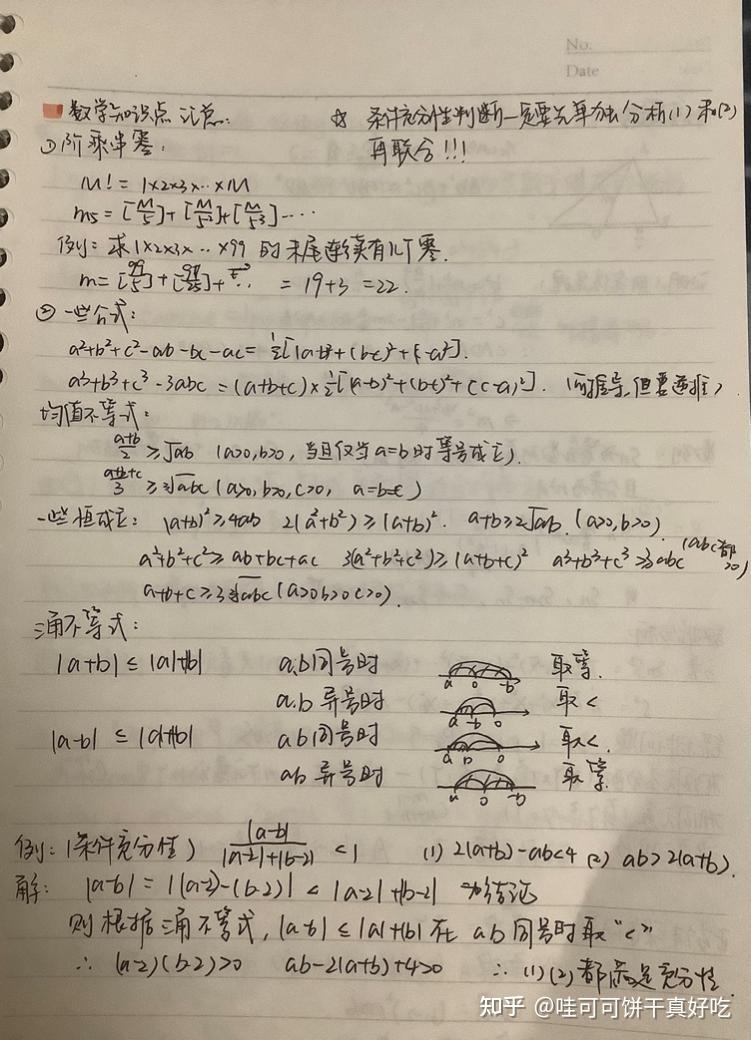 No.
Date
数学知识点 汇总:
☆ 条件充分性判断一定要先单独分析(1)和(2)
再联合!!!
①阶乘串零.
M! = 1×2×3×…×M
m5 = [M/5]+[M/5²]+[M/5³]……
例: 求1×2×3×…×99 的末尾连续有几个零.
m=[99/5]+[99/25]+… = 19+3 = 22.
② 一些公式:
a²+b²+c²-ab-bc-ac = ½[(a-b)²+(b-c)²+(c-a)²].
a³+b³+c³-3abc = (a+b+c)×½[(a-b)²+(b-c)²+(c-a)²]. (可推导,但要逆推)
均值不等式:
(a+b)/2 ≥ √ab (a>0,b>0, 当且仅当a=b时等号成立).
(a+b+c)/3 ≥ ³√abc (a>0,b>0,c>0, a=b=c)
一些恒成立: (a+b)²≥4ab 2(a²+b²)≥(a+b)². a+b≥2√ab. (a>0,b>0)
a²+b²+c²≥ab+bc+ac 3(a²+b²+c²)≥(a+b+c)² a³+b³+c³≥3abc (abc都>0)
a+b+c≥3³√abc (a>0 b>0 c>0).
三角不等式:
|a+b| ≤ |a|+|b| a,b同号时 a 0 -b 取等.
a,b 异号时 a -b 0 取<
|a-b| ≤ |a|+|b| ab同号时 a b 0 取<.
ab 异号时 a 0 -b 取等.
例: (条件充分性) |a-b|/(|a-2|+|b-2|) <1 (1) 2(a+b)-ab<4 (2) ab>2(a+b).
解: |a-b| = |(a-2)-(b-2)| < |a-2|+|b-2| 为结论
则根据三角不等式, |a-b|≤|a|+|b| 在 ab 同号时取"<"
∴ (a-2)(b-2)>0 ab-2(a+b)+4>0 ∴ (1)(2)都满足充分性.
知乎 @哇可可饼干真好吃